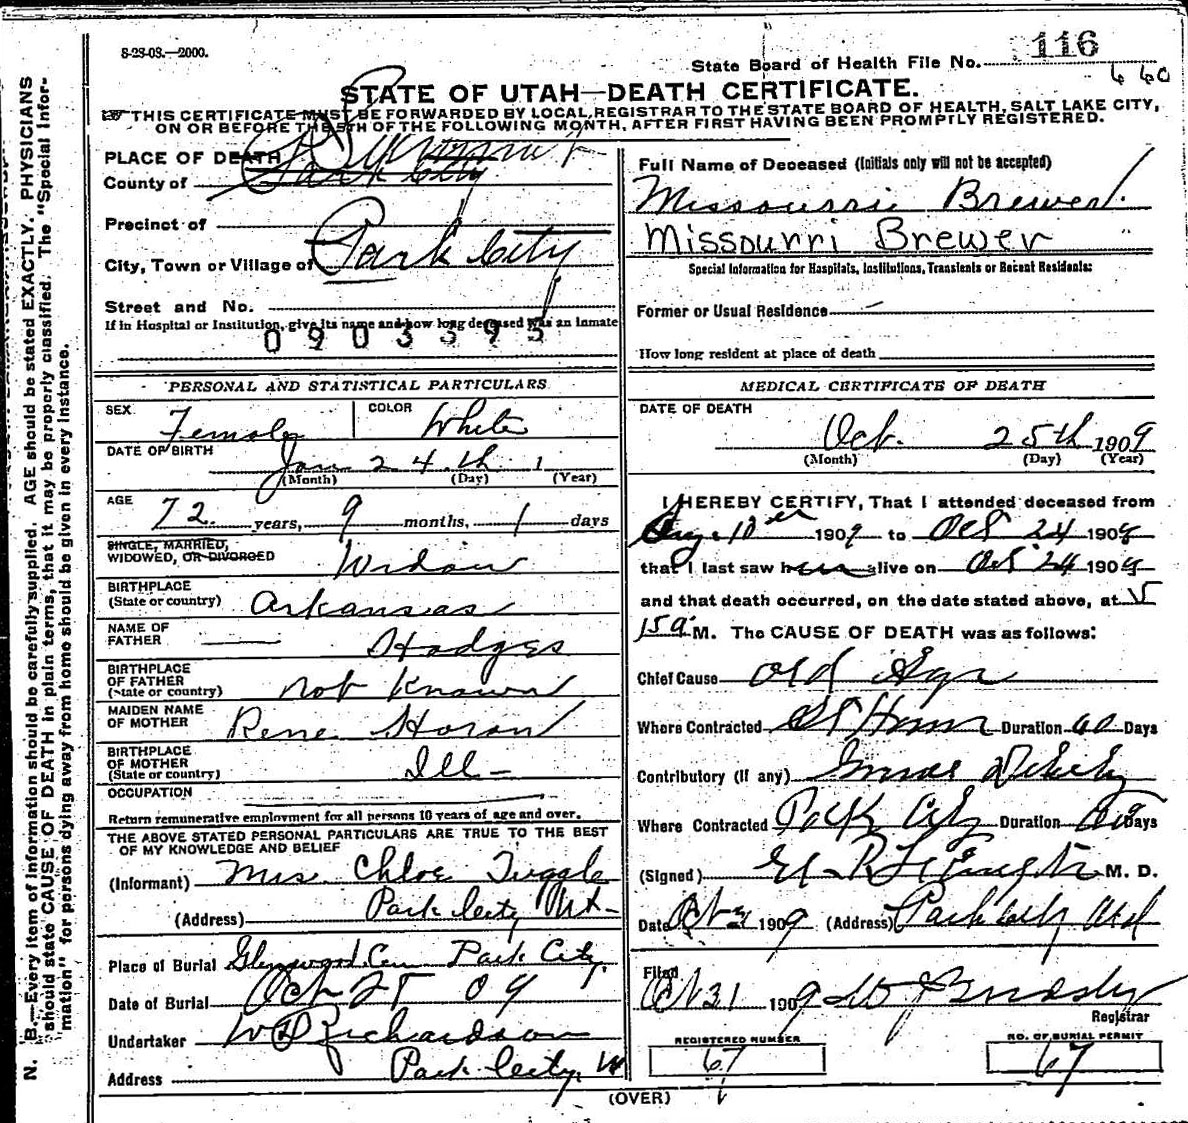 8-28-08.—2000.
116
State Board of Health File No.
660
STATE OF UTAH—DEATH CERTIFICATE.
THIS CERTIFICATE MUST BE FORWARDED BY LOCAL REGISTRAR TO THE STATE BOARD OF HEALTH, SALT LAKE CITY,
ON OR BEFORE THE 5TH OF THE FOLLOWING MONTH, AFTER FIRST HAVING BEEN PROMPTLY REGISTERED.
PLACE OF DEATH
County of Park City
Precinct of
City, Town or Village of Park City
Street and No.
If in Hospital or Institution, give its name and how long deceased was an inmate
0903395
PERSONAL AND STATISTICAL PARTICULARS
SEX Female COLOR White
DATE OF BIRTH Jan 24th 1
(Month) (Day) (Year)
AGE 72 years, 9 months, 1 days
SINGLE, MARRIED,
WIDOWED, OR DIVORCED Widow
BIRTHPLACE
(State or country) Arkansas
NAME OF
FATHER Hodges
BIRTHPLACE
OF FATHER
(State or country) not known
MAIDEN NAME
OF MOTHER Rene Horan
BIRTHPLACE
OF MOTHER
(State or country) Ill-
OCCUPATION
Return remunerative employment for all persons 10 years of age and over.
THE ABOVE STATED PERSONAL PARTICULARS ARE TRUE TO THE BEST
OF MY KNOWLEDGE AND BELIEF
(Informant) Mrs Chloe Tuggle
(Address) Park City Ut-
Place of Burial Glenwood Cem Park City
Date of Burial Oct 28 09
Undertaker W D Richardson
Address Park City, Ut
Full Name of Deceased (Initials only will not be accepted)
Missourri Brewer
Missourri Brewer
Special Information for Hospitals, Institutions, Transients or Recent Residents:
Former or Usual Residence
How long resident at place of death
MEDICAL CERTIFICATE OF DEATH
DATE OF DEATH
Oct. 25th 1909
(Month) (Day) (Year)
I HEREBY CERTIFY, That I attended deceased from
Aug. 1909 to Oct 24 1909
that I last saw her alive on Oct 24 1909
and that death occurred, on the date stated above, at 5
15 a M. The CAUSE OF DEATH was as follows:
Chief Cause Old Age
Where Contracted At Home Duration 60 Days
Contributory (if any)
Where Contracted Park City Duration Days
(Signed) M. D.
Date Oct 1909 (Address) Park City Utah
Filed
Oct 31 1909
Registrar
REGISTERED NUMBER
67
NO. OF BURIAL PERMIT
67
(OVER)
N. B.—Every item of information should be carefully supplied. AGE should be stated EXACTLY. PHYSICIANS
should state CAUSE OF DEATH in plain terms, that it may be properly classified. The "Special Infor-
mation" for persons dying away from home should be given in every instance.